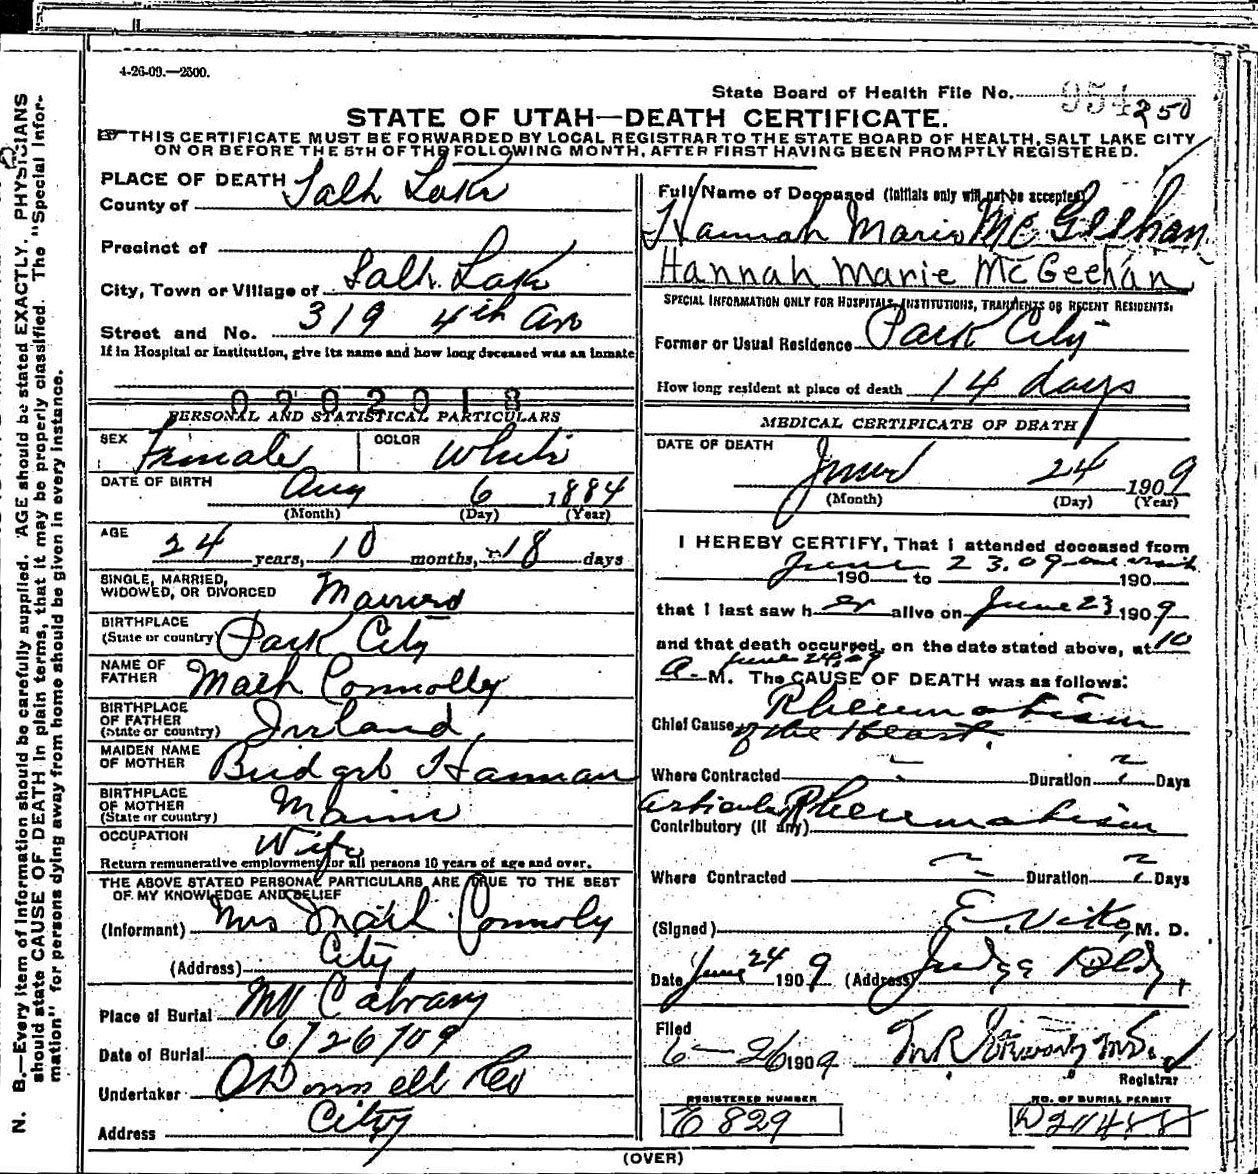 4-26-09.—2500.
State Board of Health File No. 954 250
STATE OF UTAH—DEATH CERTIFICATE.
THIS CERTIFICATE MUST BE FORWARDED BY LOCAL REGISTRAR TO THE STATE BOARD OF HEALTH, SALT LAKE CITY
ON OR BEFORE THE 5TH OF THE FOLLOWING MONTH, AFTER FIRST HAVING BEEN PROMPTLY REGISTERED.
N. B.—Every item of information should be carefully supplied. AGE should be stated EXACTLY. PHYSICIANS
should state CAUSE OF DEATH in plain terms, that it may be properly classified. The "Special Infor-
mation" for persons dying away from home should be given in every instance.
PLACE OF DEATH
County of Salt Lake
Precinct of
City, Town or Village of Salt Lake
Street and No. 319 4th Av
If in Hospital or Institution, give its name and how long deceased was an inmate
0202013
PERSONAL AND STATISTICAL PARTICULARS
SEX Female COLOR White
DATE OF BIRTH Aug 6 1884
(Month) (Day) (Year)
AGE
24 years, 10 months, 18 days
SINGLE, MARRIED,
WIDOWED, OR DIVORCED Married
BIRTHPLACE
(State or country) Park City
NAME OF
FATHER Math Connolley
BIRTHPLACE
OF FATHER
(State or country) Irland
MAIDEN NAME
OF MOTHER Bridget Hannan
BIRTHPLACE
OF MOTHER
(State or country) Maine
OCCUPATION Wife
Return remunerative employment for all persons 10 years of age and over.
THE ABOVE STATED PERSONAL PARTICULARS ARE TRUE TO THE BEST
OF MY KNOWLEDGE AND BELIEF
(Informant) Mrs Math Connoly
(Address) City
Place of Burial Mt Calvary
Date of Burial 6/26/09
Undertaker O'Donnell & Co
Address City
Full Name of Deceased (Initials only will not be accepted)
Hannah Marie McGeehan
Hannah Marie McGeehan
SPECIAL INFORMATION ONLY FOR HOSPITALS, INSTITUTIONS, TRANSIENTS OR RECENT RESIDENTS.
Former or Usual Residence Park City
How long resident at place of death 14 days
MEDICAL CERTIFICATE OF DEATH
DATE OF DEATH
June 24 1909
(Month) (Day) (Year)
I HEREBY CERTIFY, That I attended deceased from
June 23.09 one visit
190 to 190
that I last saw her alive on June 23 1909
and that death occurred, on the date stated above, at 10
June 24.09
a. M. The CAUSE OF DEATH was as follows:
Chief Cause Rheumatism
of the Heart.
Where Contracted ? Duration ? Days
Articular Rheumatism
Contributory (if any)
Where Contracted ? Duration ? Days
(Signed) E. Viko, M. D.
Date June 24 1909 (Address) Judge Bldg.
Filed
6-26 1909
Registrar
REGISTERED NUMBER
E 829
NO. OF BURIAL PERMIT
D 21488
(OVER)